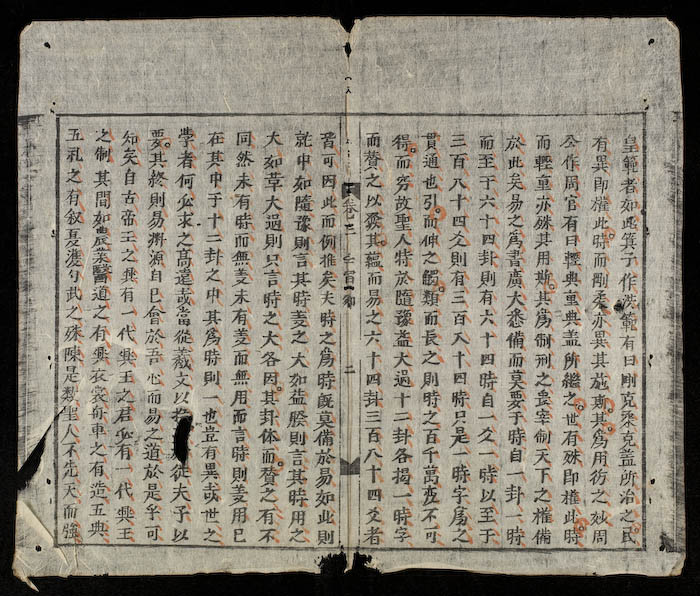 皇範者如此箕子作洪範有曰剛克柔克盖所治之民
有異即權此時而剛柔亦異其施斯其爲用彷之妙周
公作周官有曰輕典重典盖所繼之世有殊即權此時
而輕重亦殊其用斯其爲制刑之宰制天下之權備
於此矣易之爲書廣大悉備而莫要于時自一卦一時
而至于六十四卦則有六十四時自一爻一時以至于
三百八十四爻則有三百八十四時只是一時字爲之
貫通也引而伸之觸類而長之則時之百千萬變不可
得而窮故聖人特於隨豫盖大過十二卦各揭一時字
而賛之以發其蘊而易之六十四卦三百八十四爻者
卷之二
皆可因此而例推矣夫時之爲時既莫備於易如此則
就中如隨豫則言其時義之大如益睽則言其時用之
大如革大過則只言時之大各因其卦体而賛之有不
同然未有時而無義未有義而無用而言時則義用已
在其中于十二卦之中其爲時則一也豈有異哉世之
學者何必求之高遠或當從羲文以 從夫子以
要其終則易淵源自已會於吾心而易之道於是乎可
知矣自古帝王之興有一代興王之君必有一代興王
之制其間如農桒醫道之有興衣裳舟車之有造五典
五礼之有叙夏濩勺武之殊陳是數聖人不先天而強